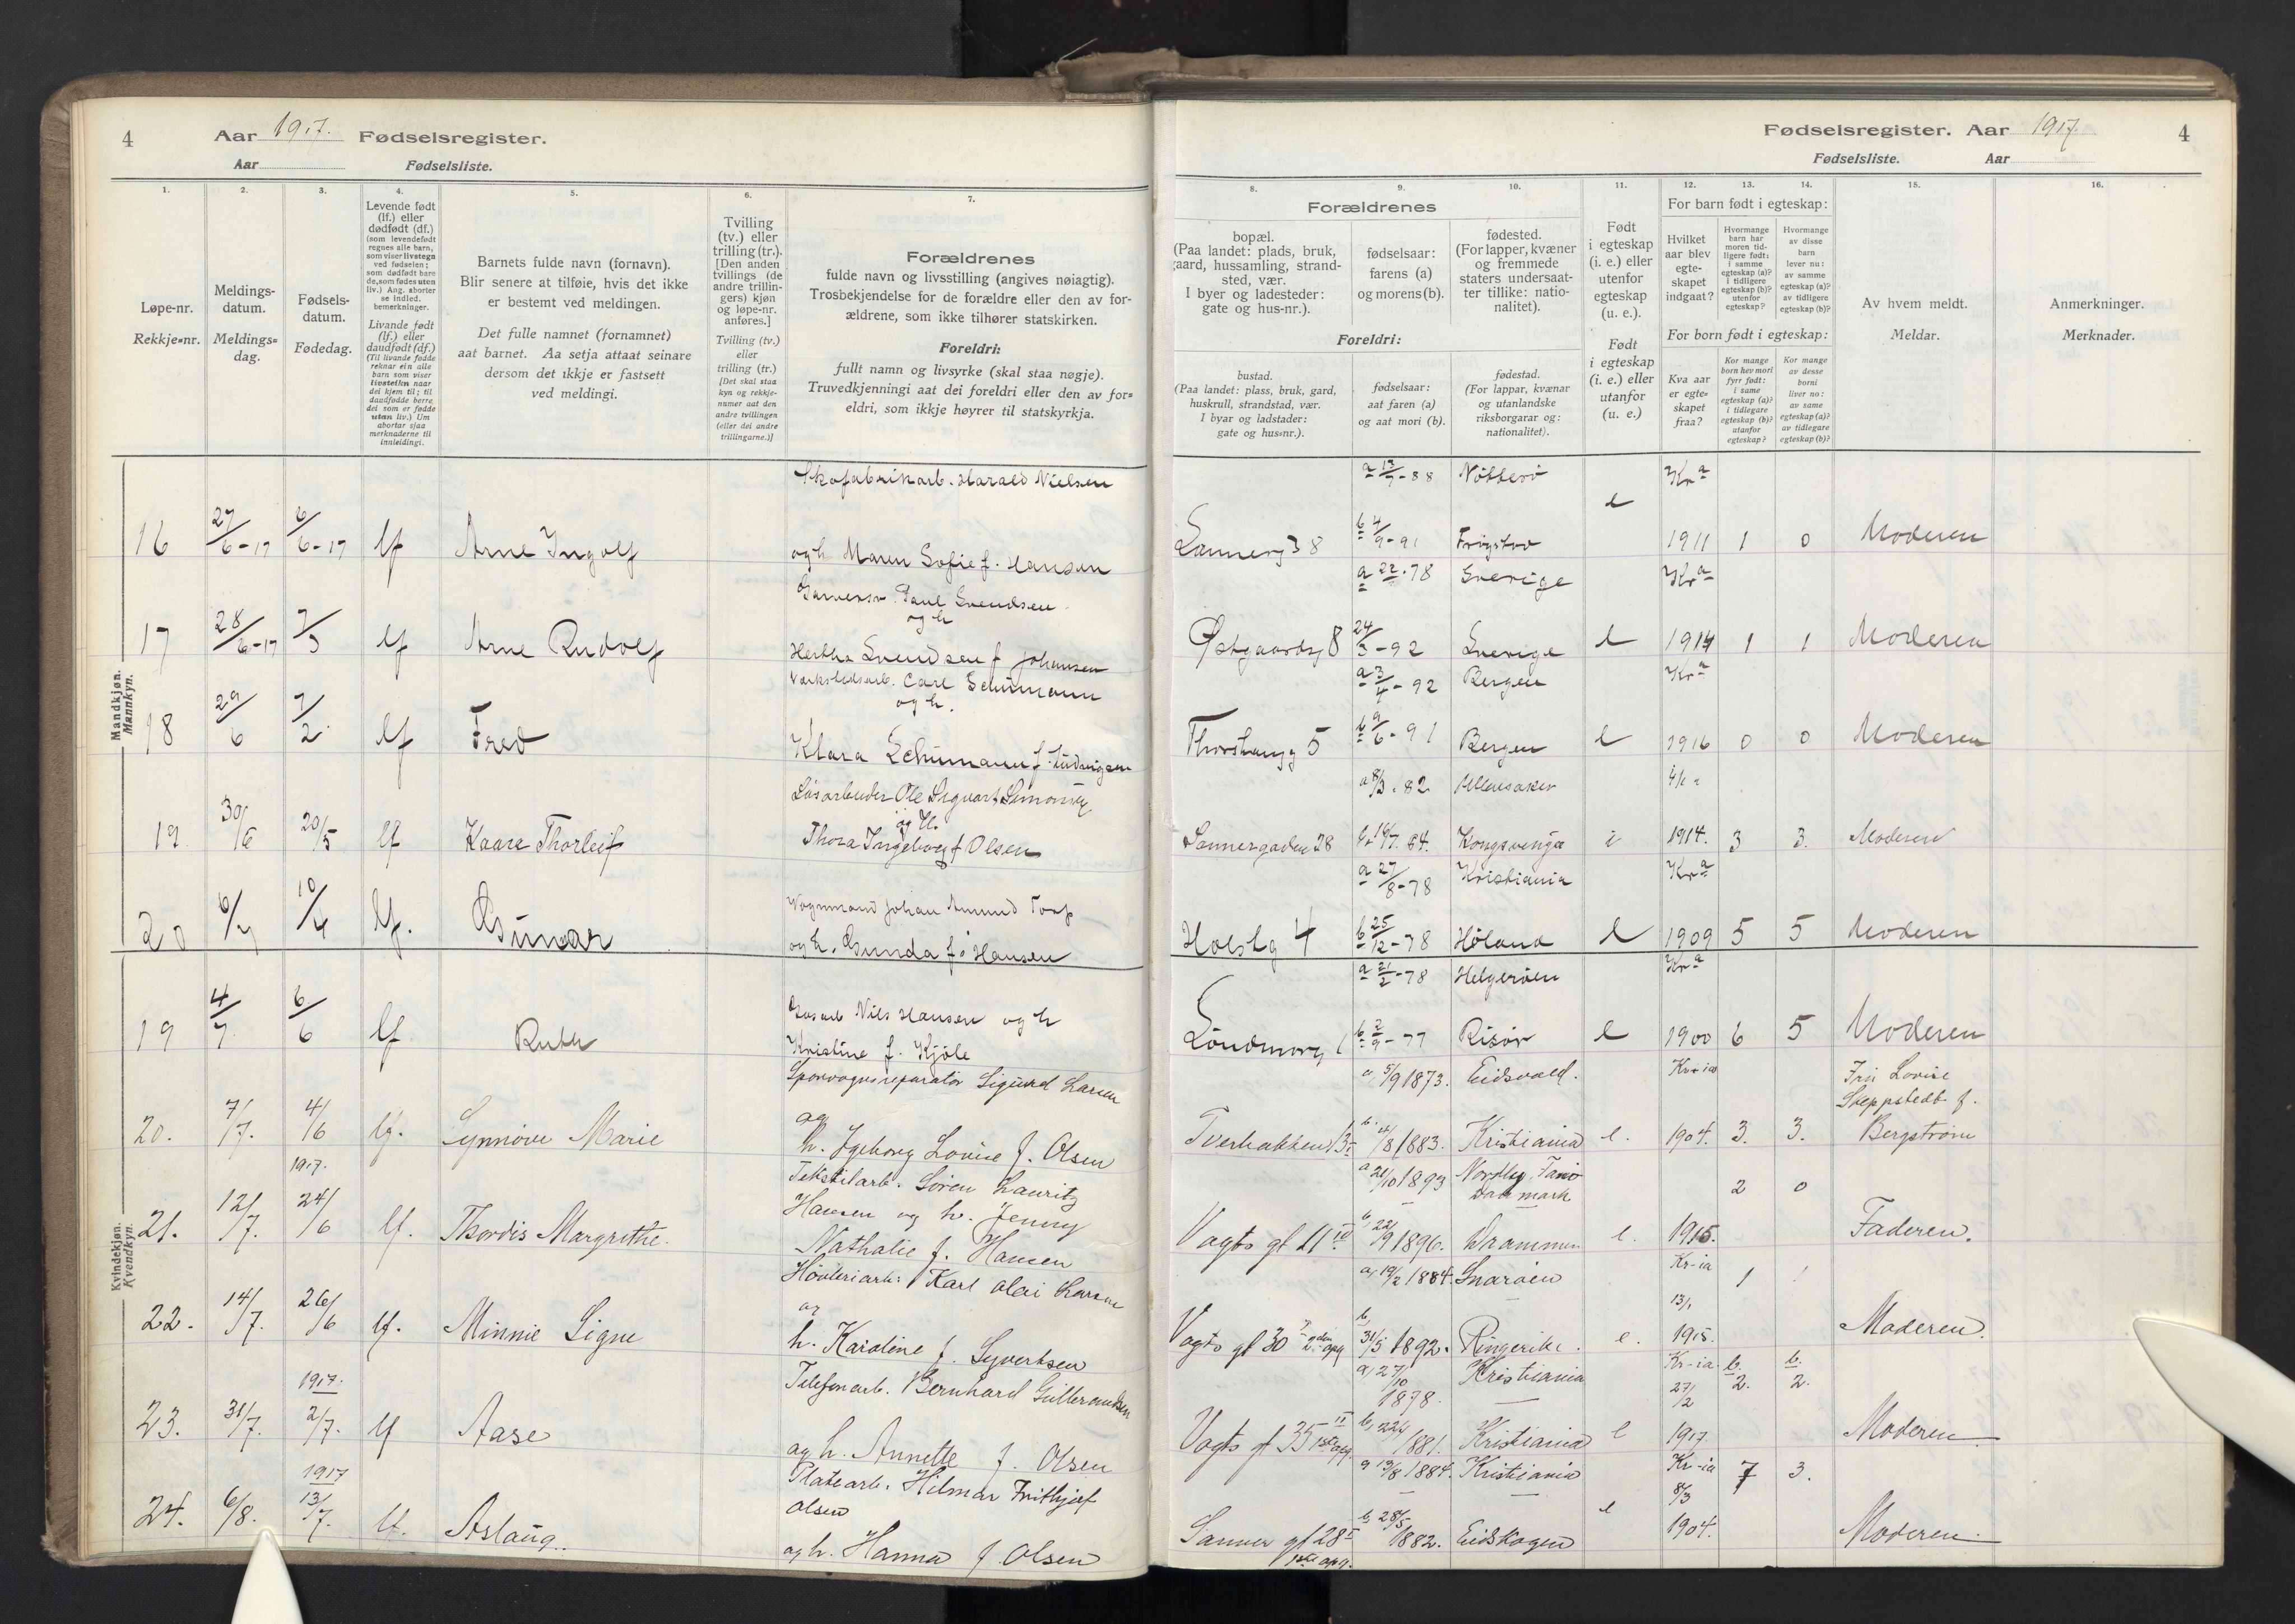 4 Aar 1917. Fødselsregister.
Aar Fødselsliste.
Fødselsregister. Aar 1917. 4
Fødselsliste. Aar
1. 2. 3. 4. 5. 6. 7.
8. 9. 10. 11. 12. 13. 14. 15. 16.
Løpe-nr.
Rekkje-nr.
Meldings-
datum.
Meldings-
dag.
Fødsels-
datum.
Fødedag.
Levende født
(lf.) eller
dødfødt (df.)
(som levendefødt
regnes alle barn,
som viser livstegn
ved fødselen;
som dødfødt barn
de, som fødes uten
liv.) Ang. aborter
se indled.
bemerkninger.
Livande født
(lf.) eller
daudfødt (df.)
(Til livande fødde
reknar ein alle
barn som viser
livsteikn naar
dei kjem til; til
daudfødde berre
dei som er fødde
utan liv.) Um
abortar sjaa
merknaderne til
innleidingi.
Barnets fulde navn (fornavn).
Blir senere at tilføie, hvis det ikke
er bestemt ved meldingen.
Det fulle namnet (fornamnet)
aat barnet. Aa setja attaat seinare
dersom det ikkje er fastsett
ved meldingi.
Tvilling
(tv.) eller
trilling (tr.).
[Den anden
tvillings (de
andre trillin-
gers) kjøn
og løpe-nr.
anføres.]
Tvilling (tv.)
eller
trilling (tr.)
[Det skal staa
kyn og rekkje-
numer aat den
andre tvillingen
(eller dei andre
trillingarne.)]
Forældrenes
fulde navn og livsstilling (angives nøiagtig).
Trosbekjendelse for de forældre eller den av for-
ældrene, som ikke tilhører statskirken.
Foreldri:
fullt namn og livsyrke (skal staa nøgje).
Truvedkjenningi aat dei foreldri eller den av for-
eldri, som ikkje høyrer til statskyrkja.
Forældrenes
bopæl.
(Paa landet: plads, bruk,
gaard, hussamling, strand-
sted, vær.
I byer og ladesteder:
gate og hus-nr.).
fødselsaar:
farens (a)
og morens (b).
fødested.
(For lapper, kvæner
og fremmede
staters undersaat-
ter tillike: natio-
nalitet).
Foreldri:
bustad.
(Paa landet: plass, bruk, gard,
huskrull, strandstad, vær.
I byar og ladstader:
gate og hus-nr.).
fødselsaar:
aat faren (a)
og aat mori (b).
fødestad.
(For lappar, kvænar
og utanlandske
riksborgarar og:
nationalitet).
Født
i egteskap
(i. e.) eller
utenfor
egteskap
(u. e.).
Født
i egteskap
(i. e.) eller
utanfor
(u. e.)
For barn født i egteskap:
Hvilket
aar blev
egte-
skapet
indgaat?
Hvormange
barn har
moren tid-
ligere født:
i samme
egteskap (a)?
i tidligere
egteskap (b)?
utenfor
egteskap?
Hvormange
av disse
barn
lever nu:
av samme
egteskap (a)?
av tidligere
egteskap (b)?
For born født i egteskap:
Kva aar
er egte-
skapet
fraa?
Kor mange
born hev mori
fyrr født:
i same
egteskap (a)?
i tidlegare
egteskap (b)?
utanfor
egteskap?
Kor mange
av desse
borni
liver no:
av same
egteskap (a)?
av tidlegare
egteskap (b)?
Av hvem meldt.
Meldar.
Anmerkninger.
Merknader.
Mandkjøn.
Mannkyn.
Skofabrikarb. Harald Nielsen a 13/7-88 Nøtterø Kra
16 27/6-17 6/6-17 lf Arne Ingolf og h Maren Sofie f. Hansen Sannerg 38 b 4/9-91 e 1911 1 0 Moderen
Garversv. Paul Svendsen a 22.78 Sverige Kra
og h
17 28/6-17 lf Arne Rudolf Hertha Svendsen f Johansen Østgaardsg 8 24/3-92 Sverige e 1914 1 1 Moderen
Verkstedsarb. Carl Schumann a 3/4-92 Bergen Kra
og h.
18 29/6 7/2 lf Fred Klara Schumann f. Ludvigsen 5 b 9/6-91 Bergen e 1916 0 0 Moderen
Løsarbeider Ole Sigvart Simonsen a 8/3.82 Ullensaker
og H.
19 30/6 20/5 lf Kaare Thorleif Thora Ingeborg f Olsen Sannergaden 28 b 16/7.84. Kongsvinger i 1914. 3 3. Moderen
a 27/8-78 Kristiania Kra
Vognmand Johan Amund Torp
20 6/7 10/4 lf. Gunnar og h. Gunda f. Hansen Holstg 4 b 25/12-78 Høland e 1909 5 5 Moderen
Kvindekjøn.
Kvendkyn.
a 21/2-78 Helgerøen Kra
Løsarb Nils Hansen og h
19 4/7 6/6 lf Ruth Kristine f. Kjöle b 2/9-77 Risør e 1900 6 5 Moderen
Sporvognsreparatör Sigurd Larsen a, 5/9 1873. Eidsvold. Kr-ia Fru Lovise
og Sleppstedt f.
20. 7/7. 4/6 lf. Synnöve Marie h. Igeborg Lovise f. Olsen Tverbakken 13 b. 4/8 1883. Kristiania e. 1904. 3. 3. Bergström
1917.
Tekstilarb. Sören Lauritz a 21/10 1893 Nordby, Fanö Danmark 2 0
21. 12/7. 24/6 lf. Thordis Margrethe. Hansen og h. Jenny
Nathalie f. Hansen Vogts gt 11 IV b, 22/9 1896. Drammen e. 1915. Faderen.
Høvleriarb. Karl Olai Larsen a, 19/2 1884. Snaröen Kr-ia 1 1
og 13/1
22. 14/7. 26/6 lf. Minnie Signe h. Karoline f. Syvertsen Vogts gt 30 b, 31/5 1892. Ringerike. e. 1915. Moderen.
1917.
Telefonarb. Bernhard Gulbrandsen a, 27/10 1878. Kristiania Kr-ia 27/2 b. 2. b. 2.
23. 31/7. 2/7. lf Aase og h. Annette f. Olsen Vogts gt 35 II b, 22/4 1881. Kristiania e 1917 Moderen.
1917
Platearb. Hilmar Frithjof a 13/8 1884. Kristiania Kr-ia 8/3 7 3.
Olsen
24. 6/8. 13/7. lf. Aslaug. og h. Hanna f. Olsen Sanner gt 28 I 1ste opg. b, 28/5 1882. Eidskogen e 1904. Moderen.